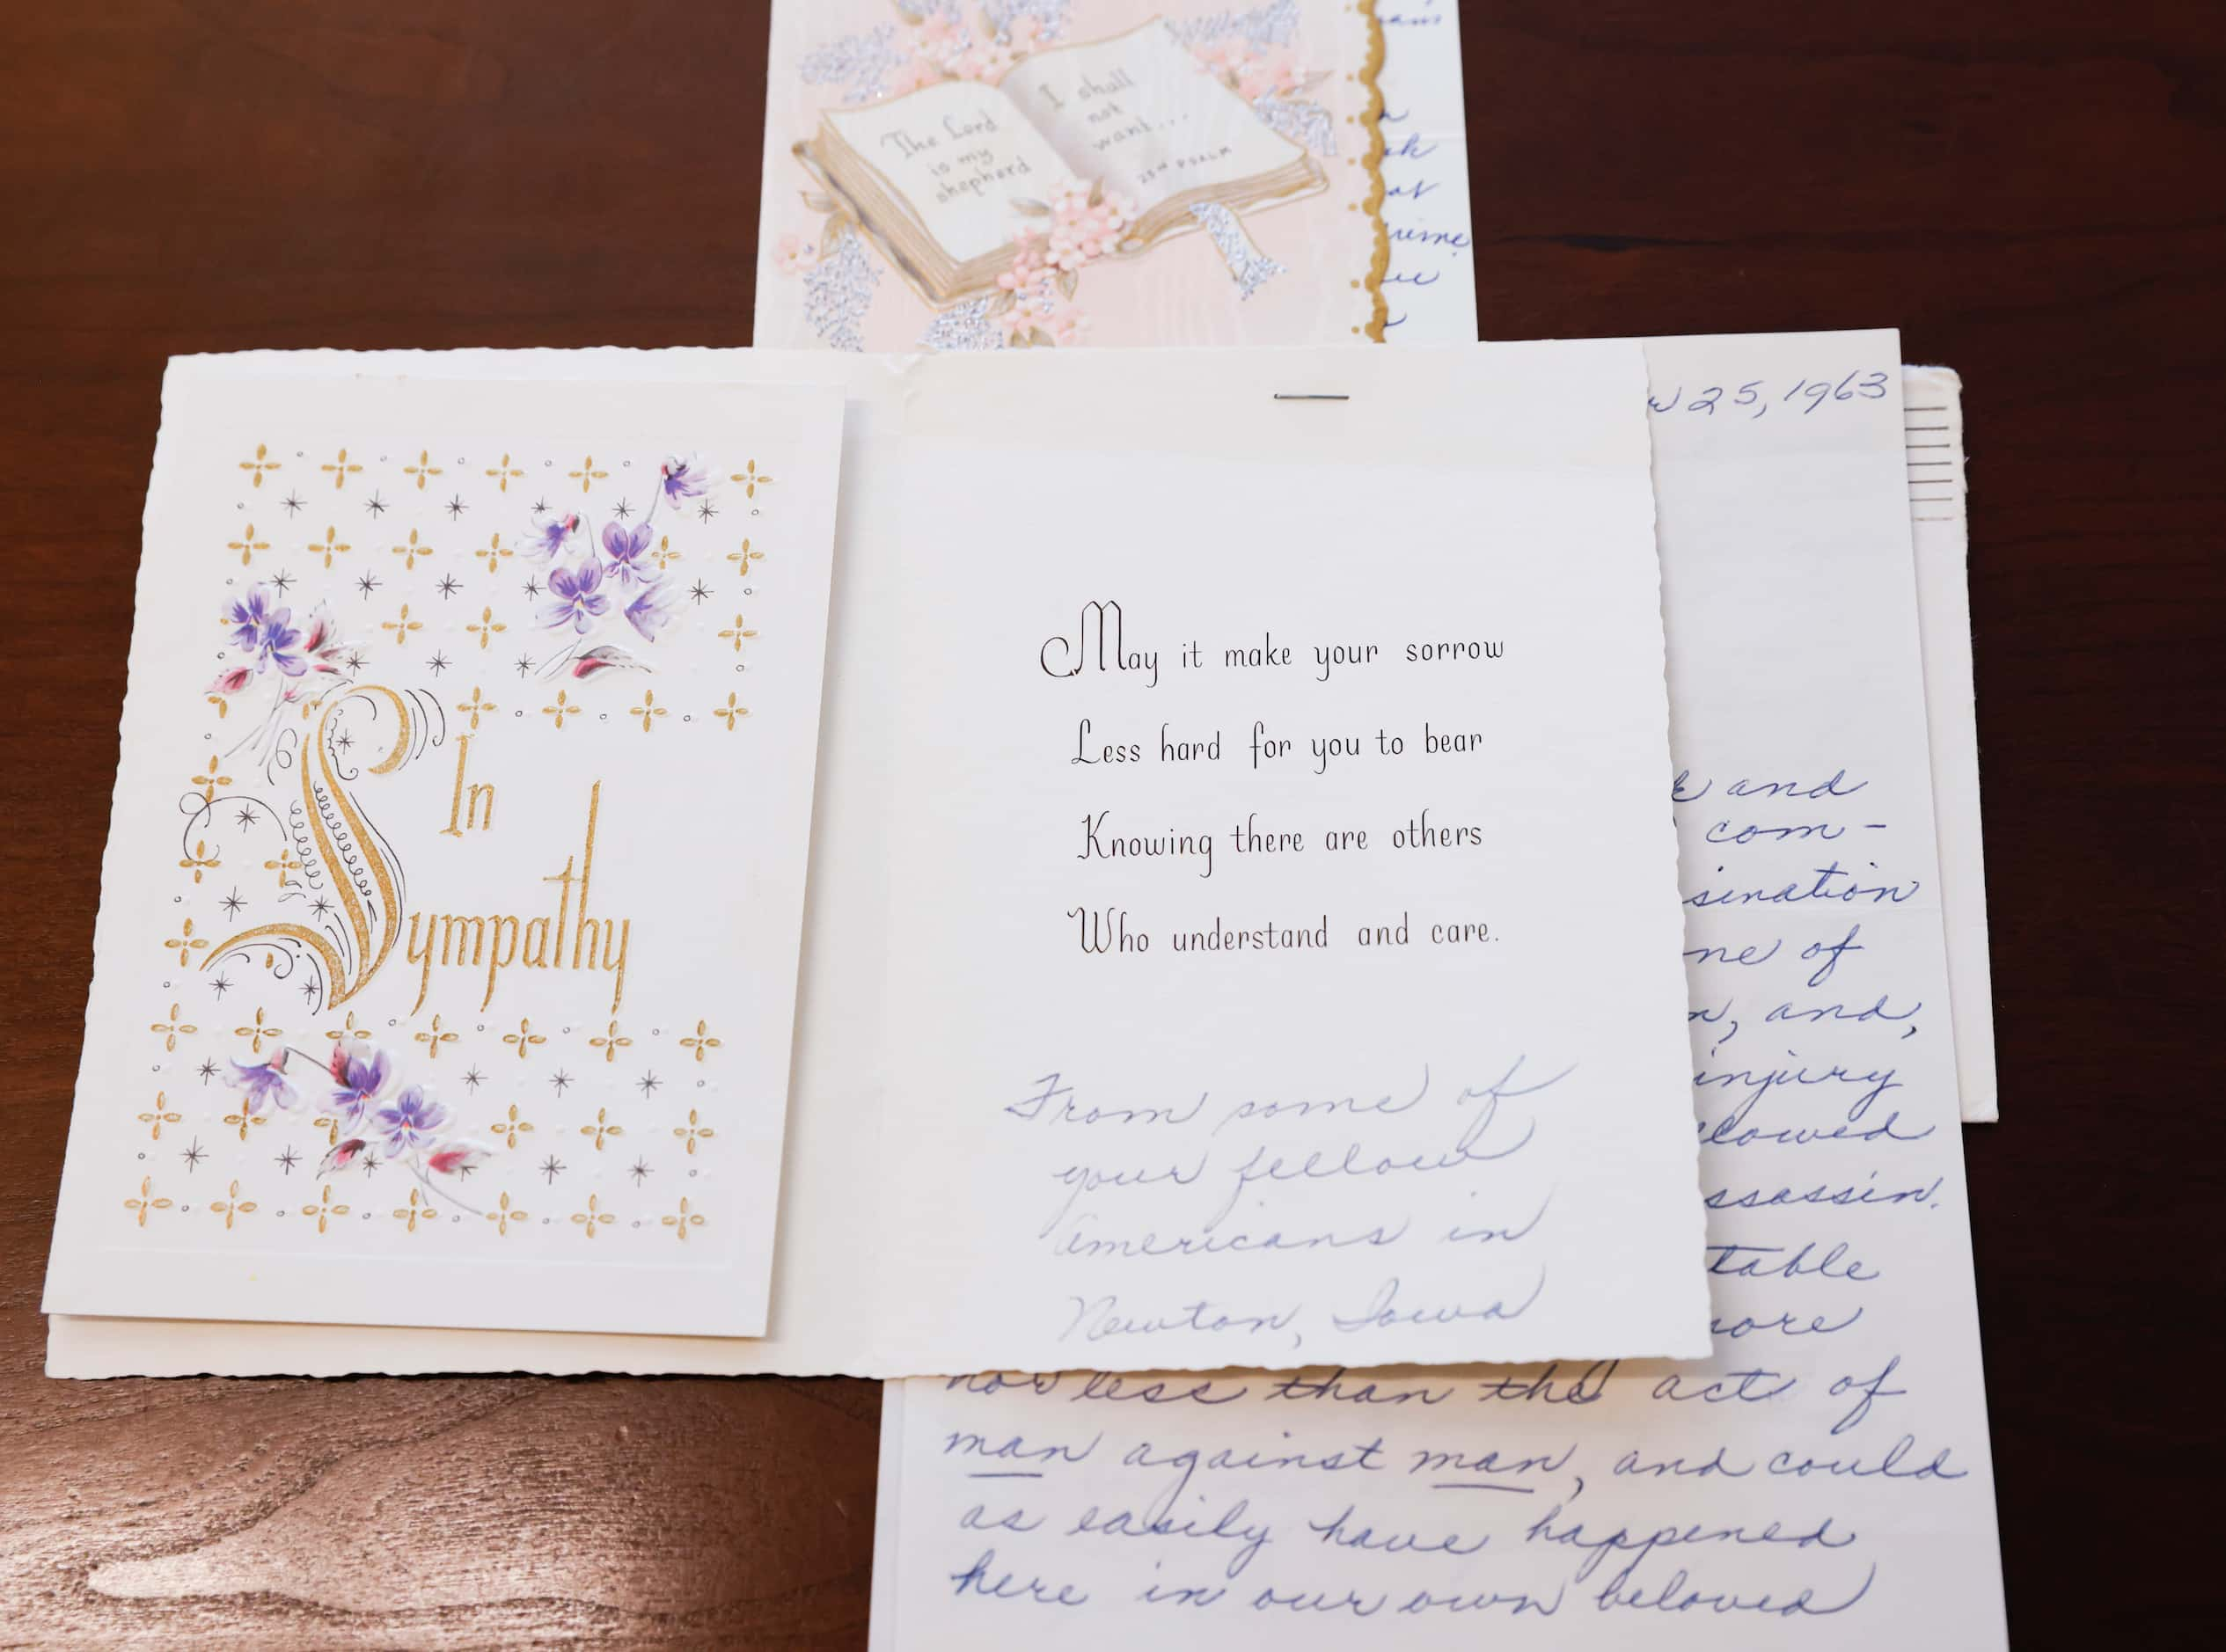 The Lord
is my
shepherd
I shall
not
want...
23rd PSALM
In
Sympathy
May it make your sorrow
Less hard for you to bear
Knowing there are others
Who understand and care.
From some of
your fellow
Americans in
Newton, Iowa
25, 1963
and
com-
sination
of
, and,
injury
ssassin.
table
nor less than the act of
man against man, and could
as easily have happened
here in our own beloved